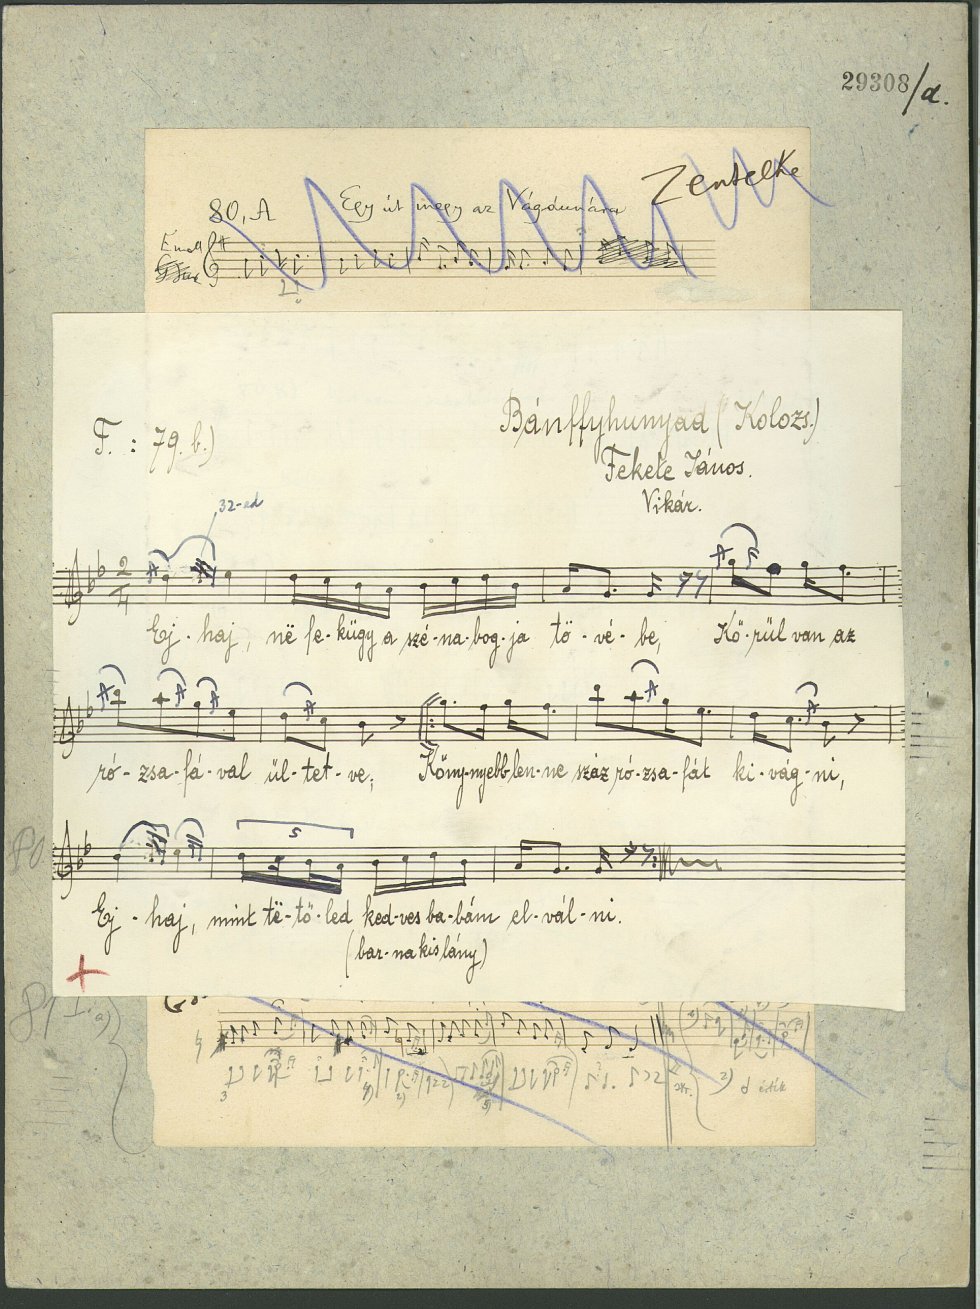 29308/a.
Zentelke
80, A Egy út megy az Vágdunára
E moll
Bánffyhunyad (Kolozs.)
F. : 79. b.)
Fekete János.
Vikár.
32-ed
2/4
Ej - haj, në fe - kügy a szé - na - bog - ja tö - vé - be, Kö - rül van az
ró - zsa - fá - val ül - tet - ve, Köny - nyebb len - ne száz ró - zsa - fát ki - vág - ni,
80
5
Ej - haj, mint të - tö - led ked - ves ba - bám el - vál - ni.
(bar - na kis lány)
81 I. a)
3
2)